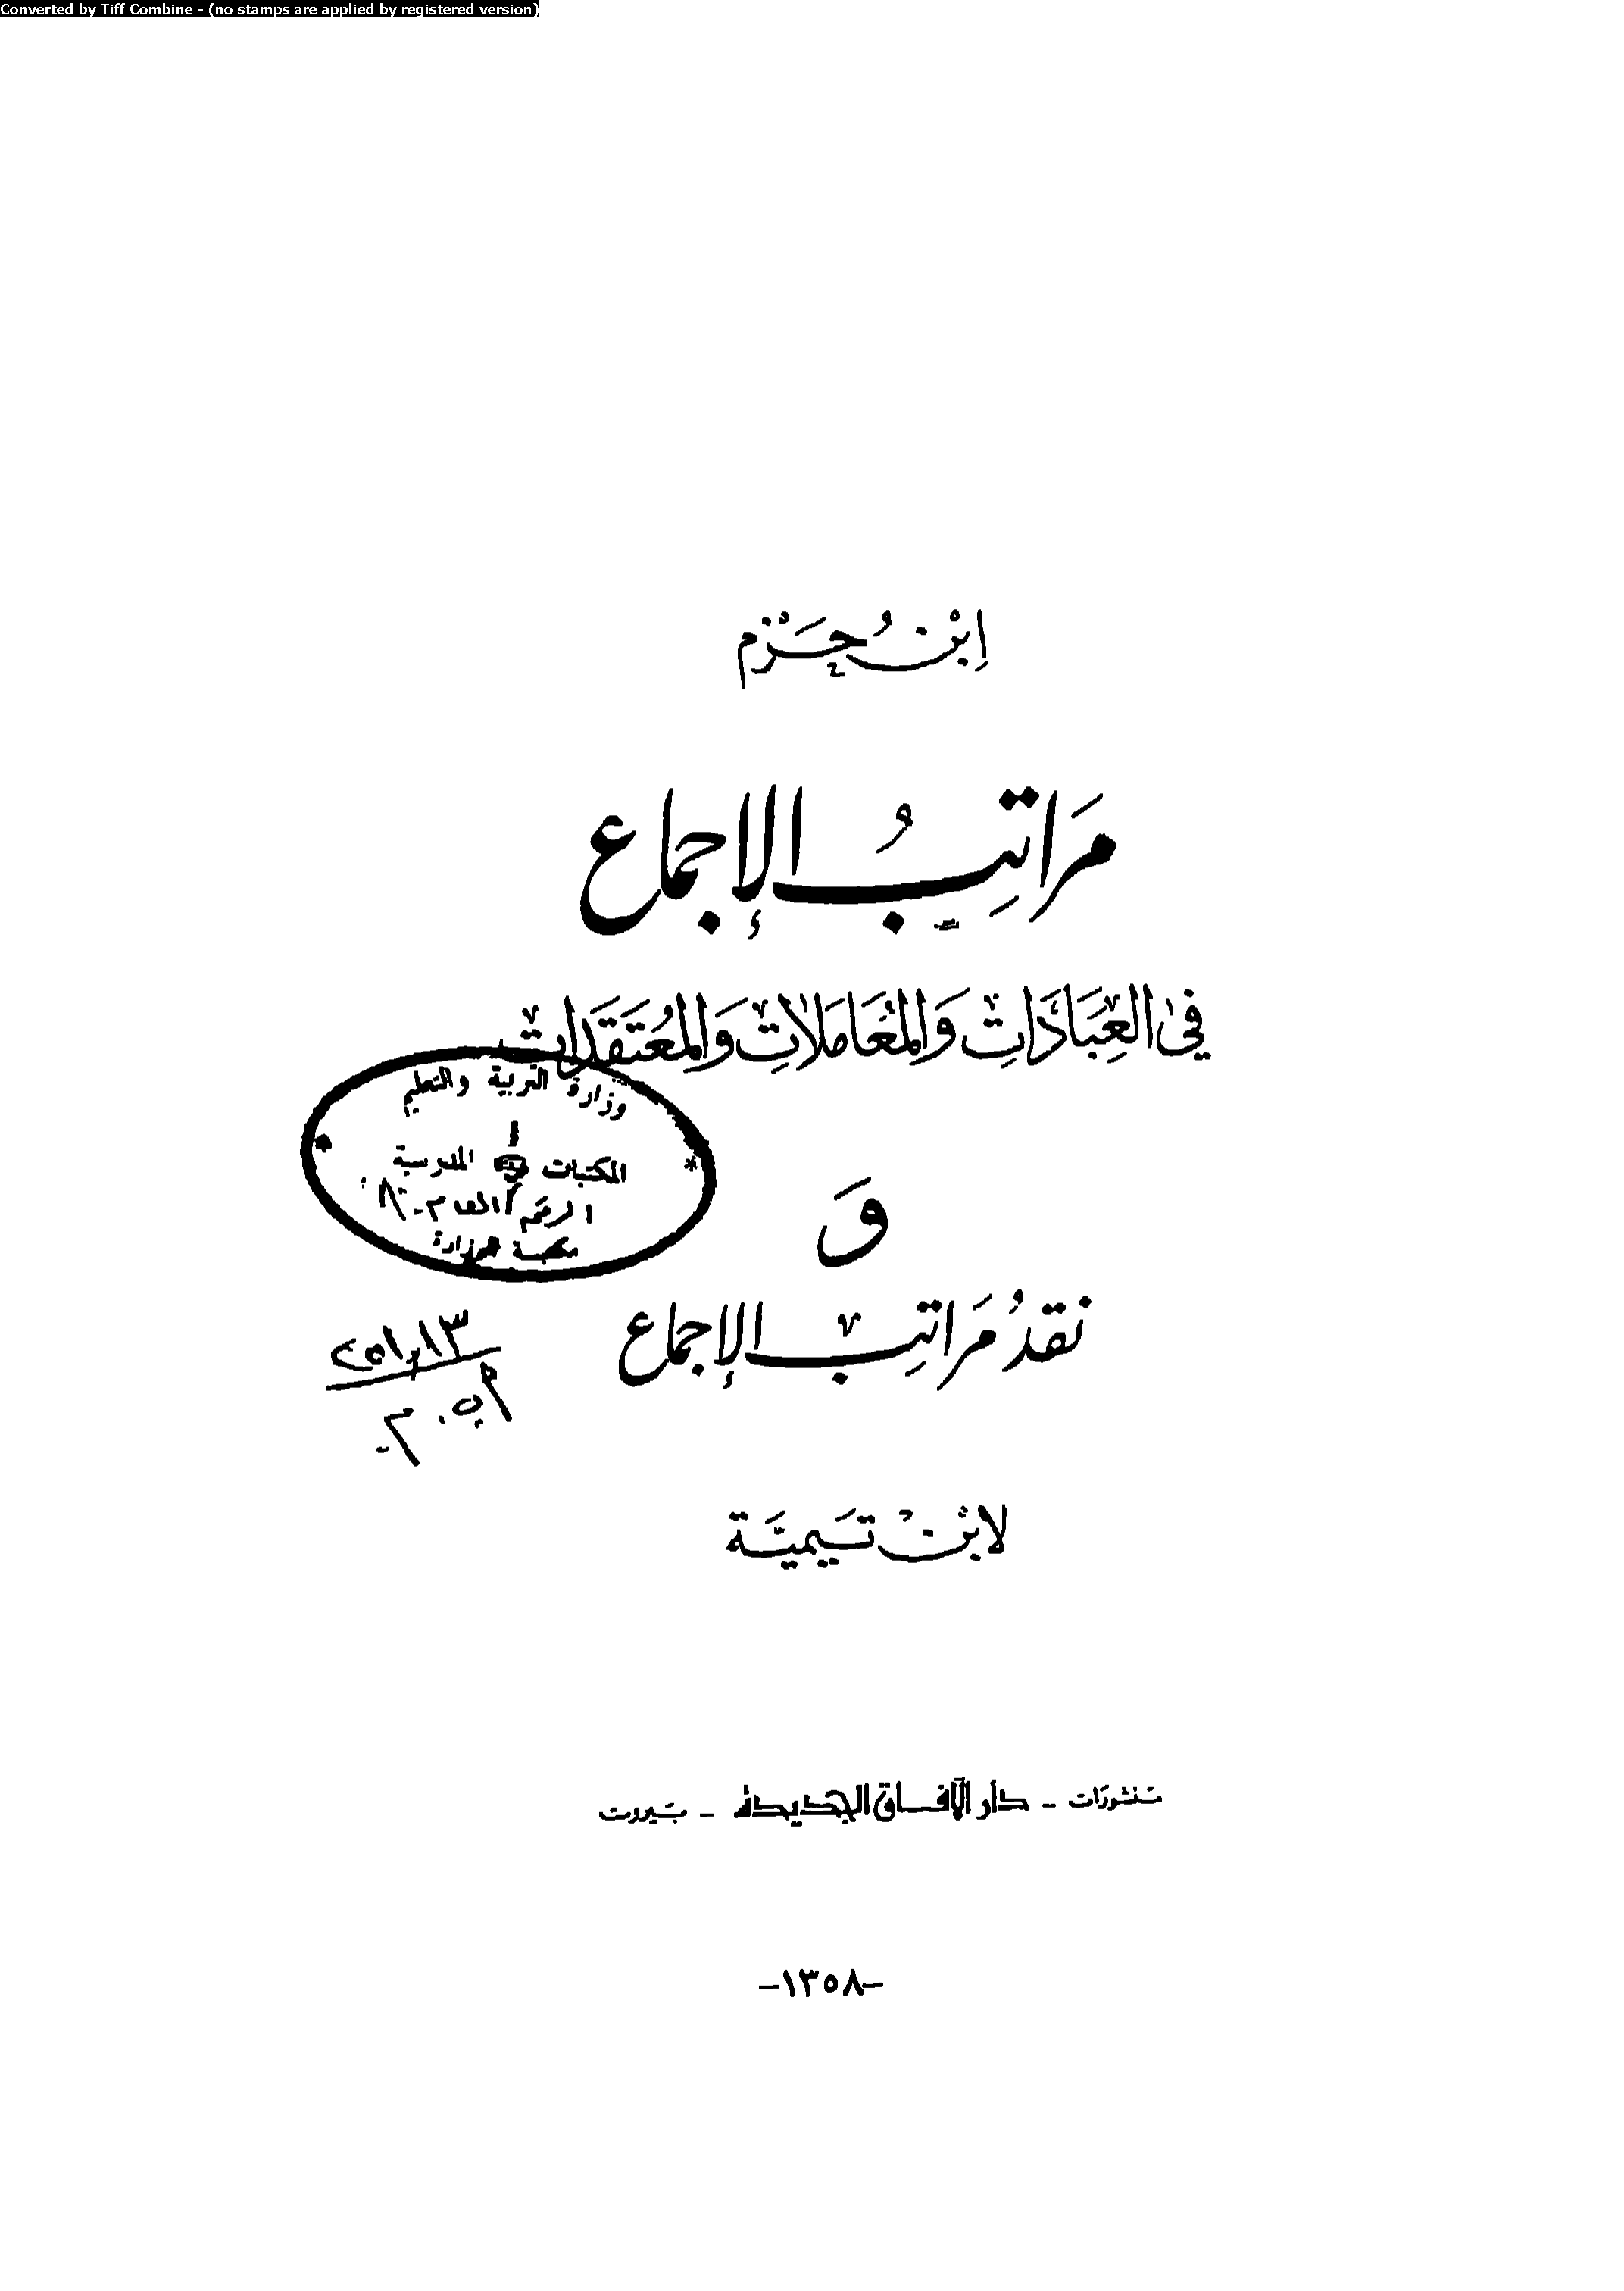 Converted by Tiff Combine - (no stamps are applied by registered version)
اِبْنُ حَزْم
مَرَاتِبُ الإِجماع
فِي العِبَادَاتِ وَالمُعَامَلَاتِ وَالمُعتَقَدَات
وزارة التربية والتعليم
المكتبات المدرسية
الرقم العام
مكتبة الوزارة
وَ
نقدُ مَراتِب الإِجماع
لابْن تَيميَّة
مَنشورَات - دار الآفاق الجديدة - بَيروت
-١٣٥٨-